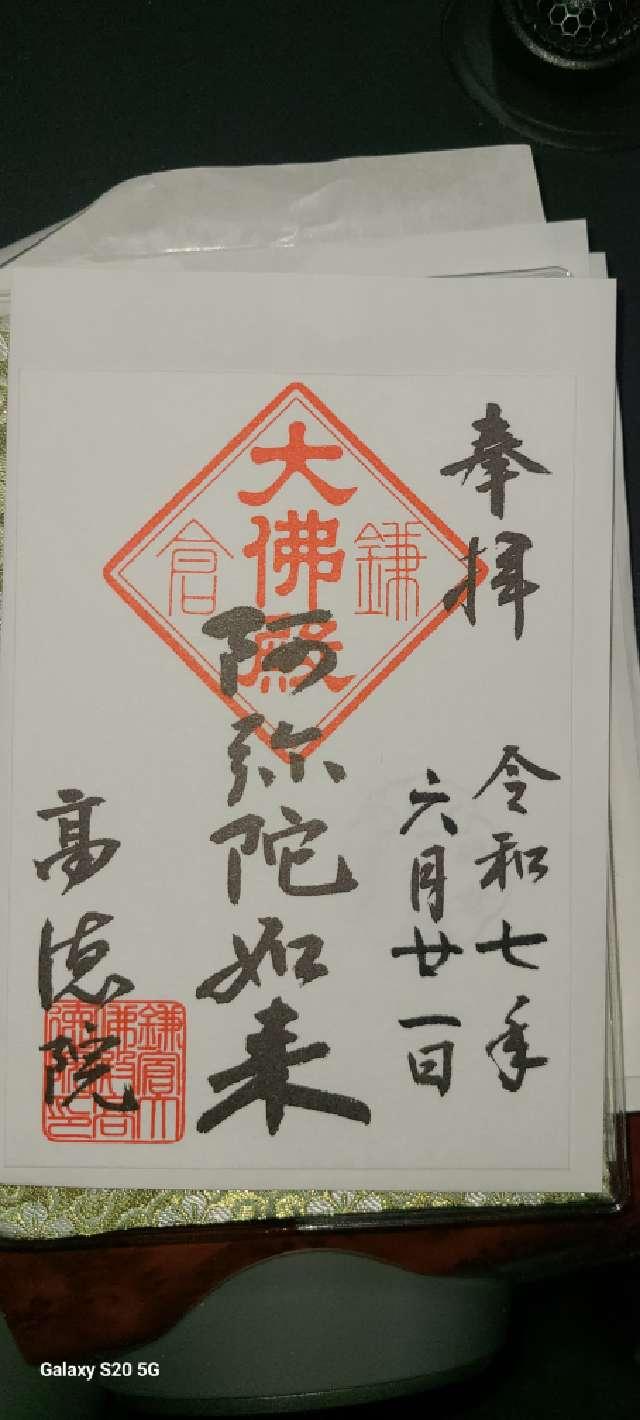 奉拝
令和七年
六月廿一日
鎌倉
大佛殿
阿弥陀如来
高徳院
鎌倉大
佛殿高
徳院印
Galaxy S20 5G